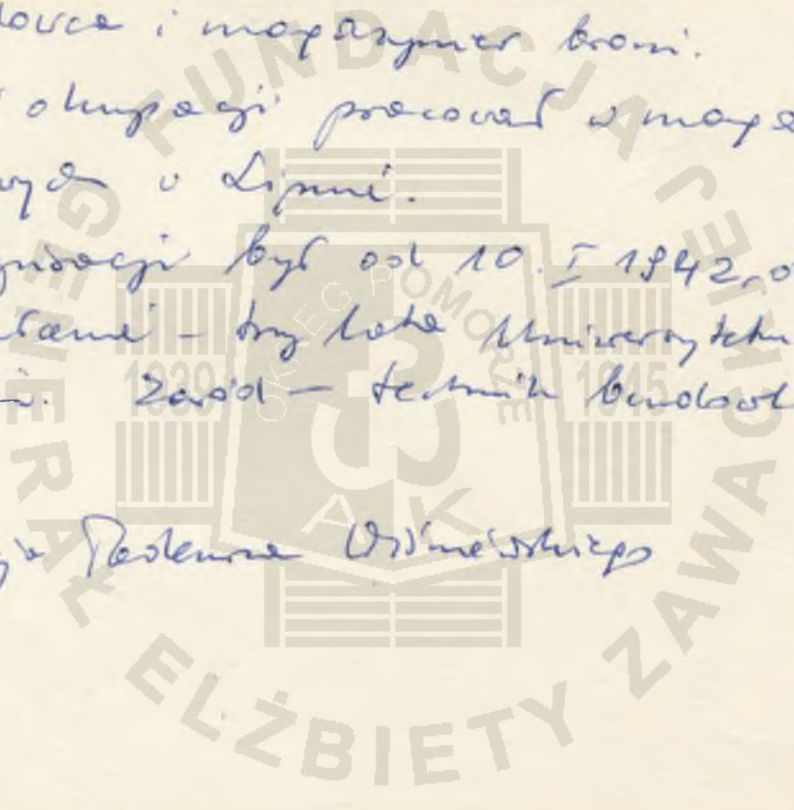 i magazynier broni.
okupacji pracował w maga
w Lipnie.
był od 10. I 1942, o
– trzy lata Uniwersytetu
Zawód – technik budowl
Tadeusza Wiśniewskiego
FUNDACJA GENERAŁ ELŻBIETY ZAWACKIEJ
OKRĘG POMORZE
1939 1945
AK